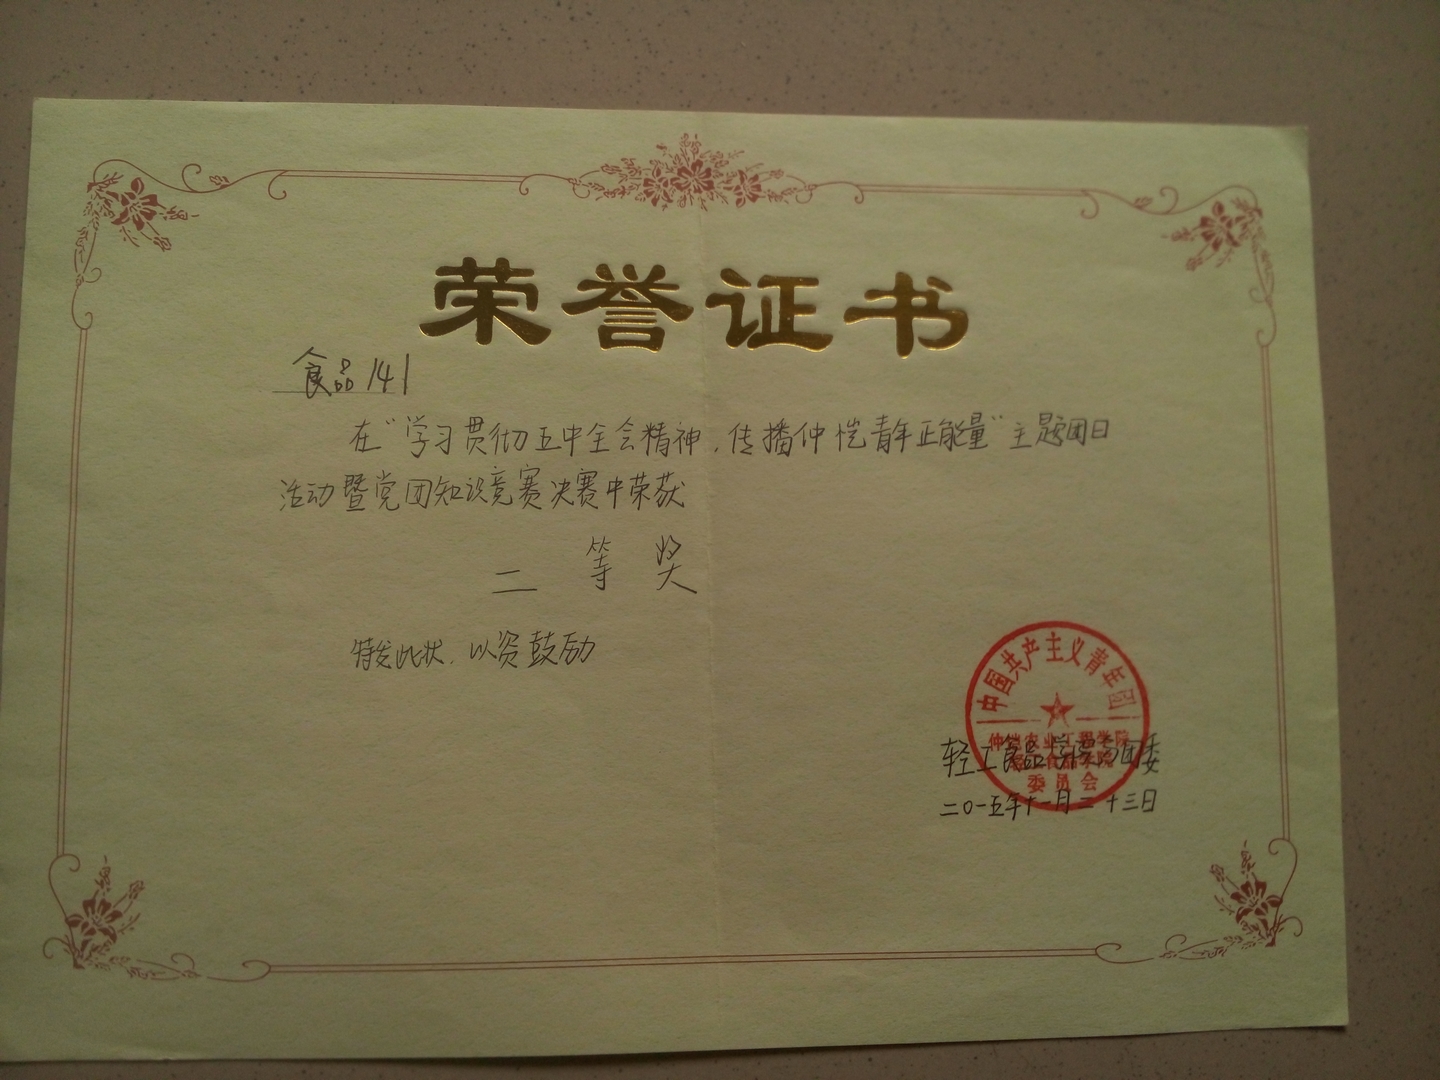 荣誉证书
食品141
在"学习贯彻五中全会精神，传播仲恺青年正能量"主题团日
活动暨党团知识竞赛决赛中荣获
二等奖
特发此状，以资鼓励
中国共产主义青年团
仲恺农业工程学院
委员会
轻工食品学院团委
二〇一五年十一月二十三日